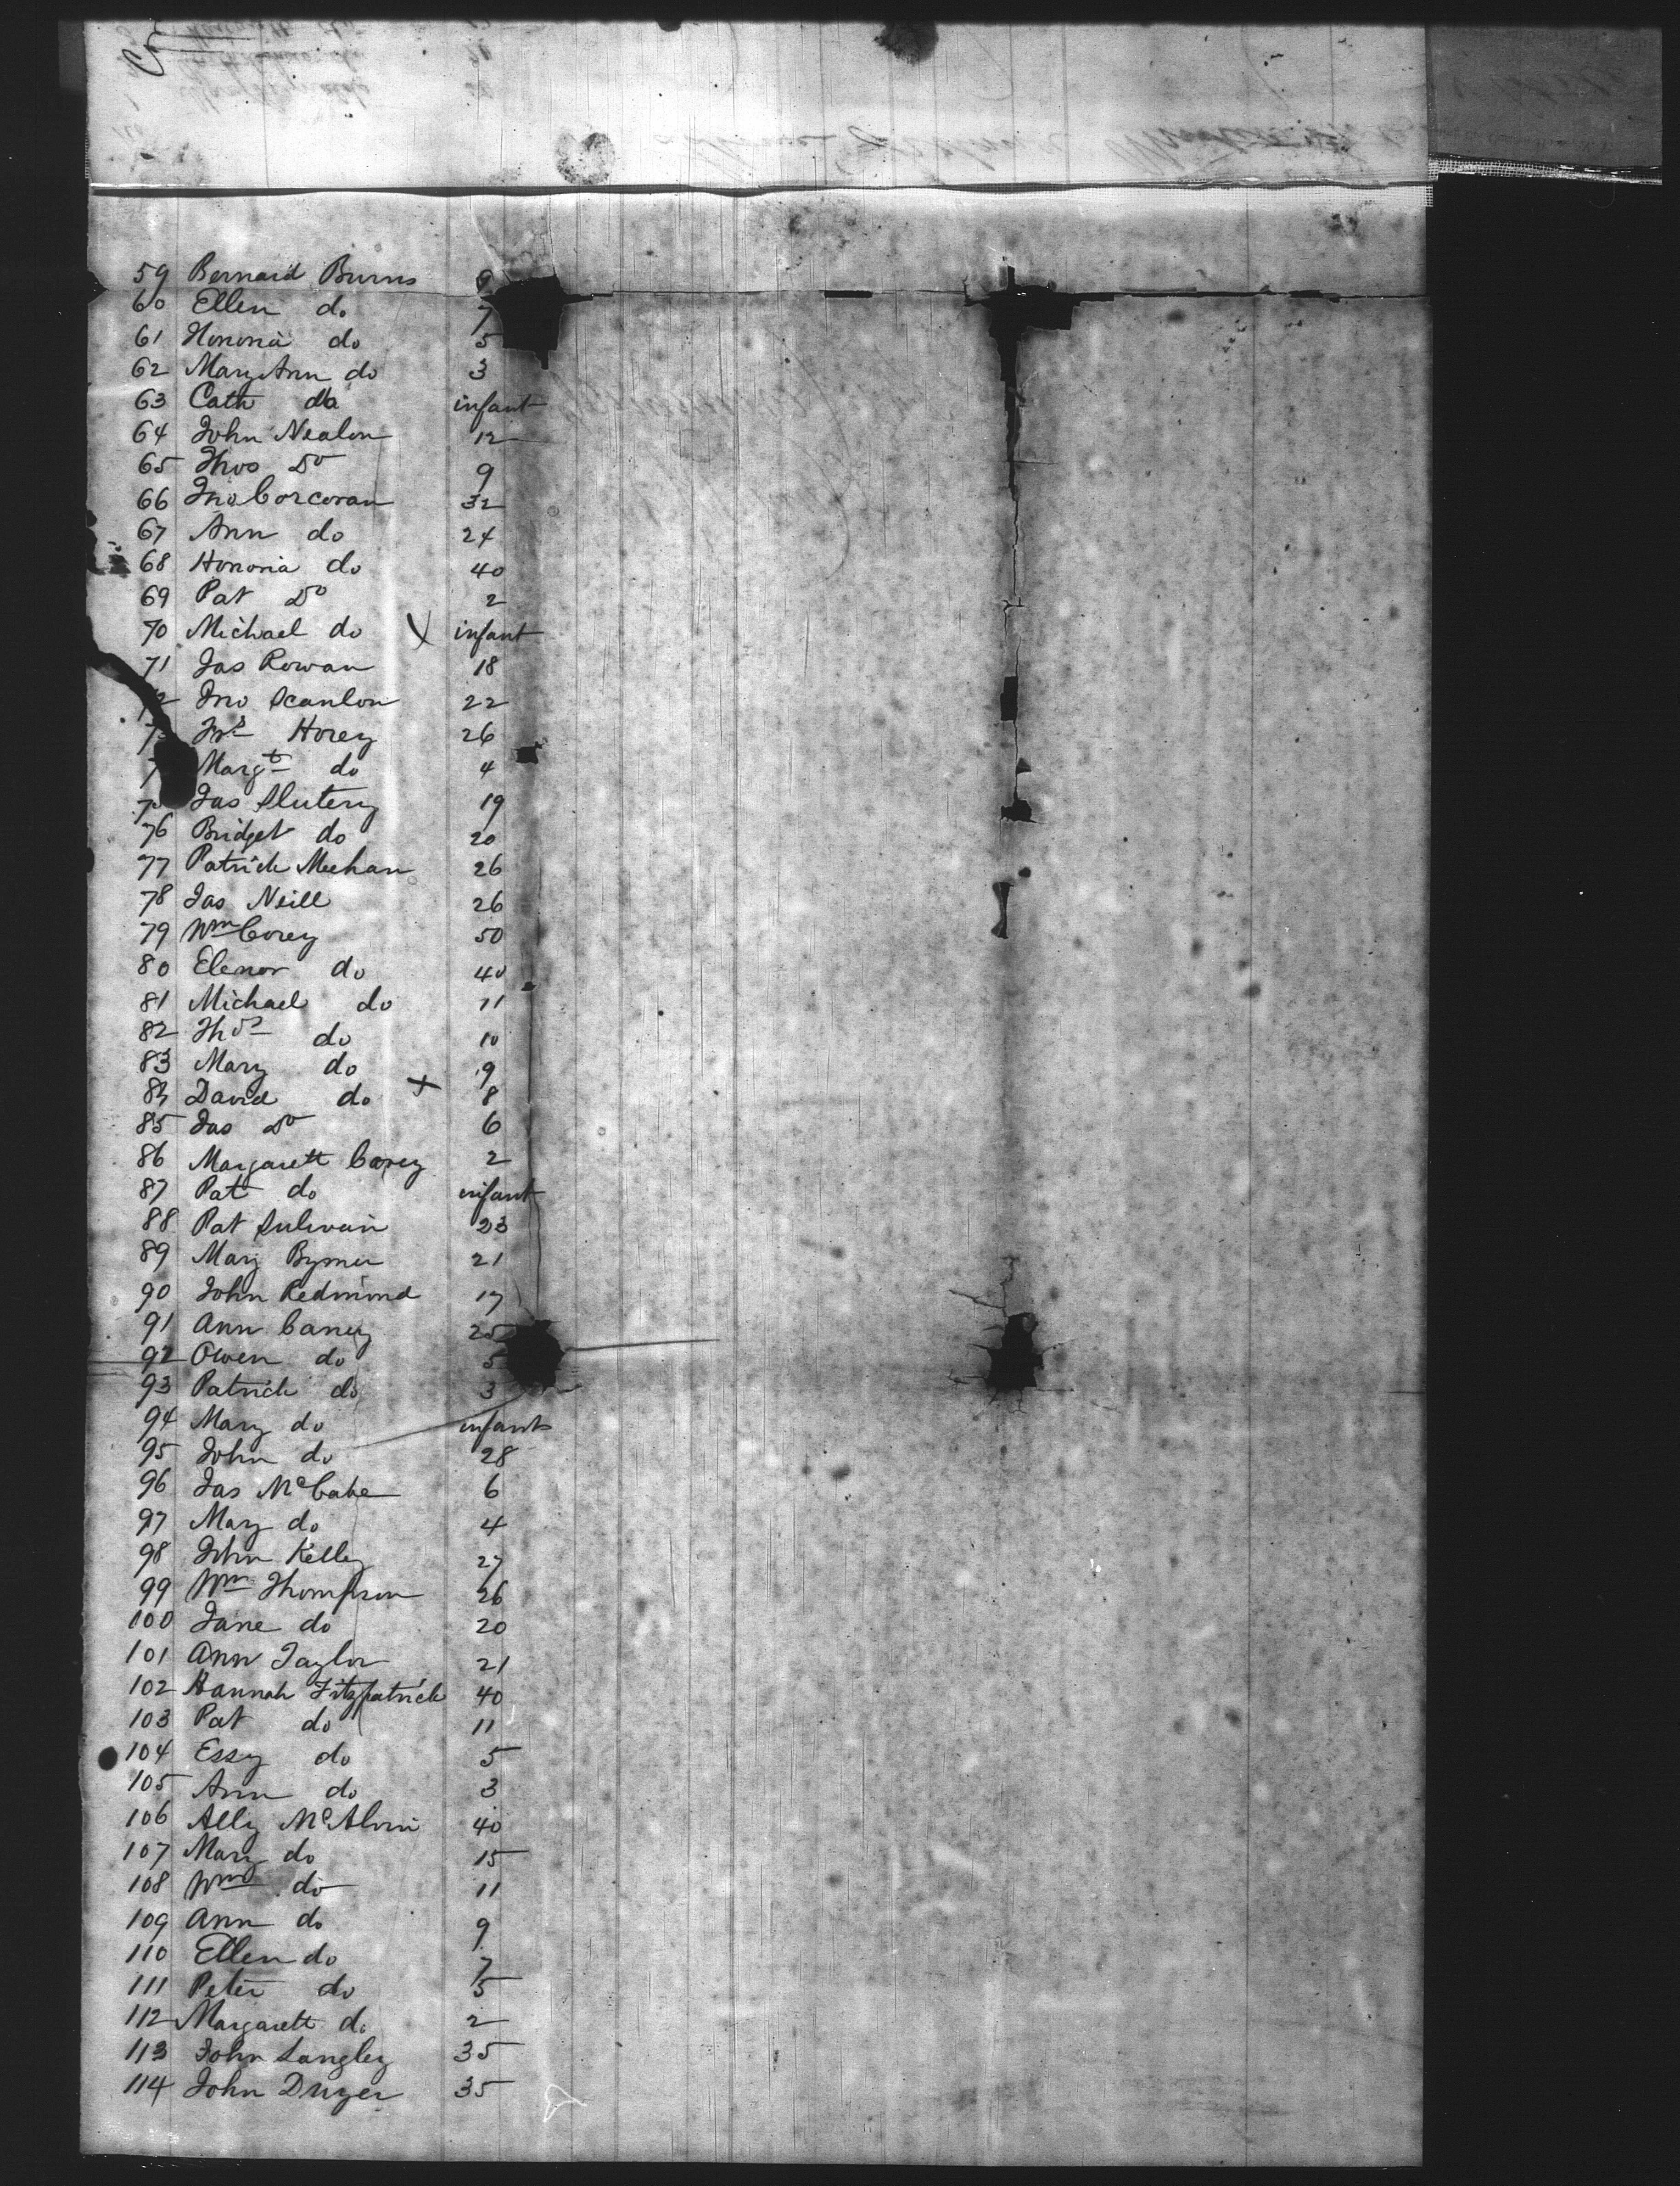 59 Bernard Burns 9
60 Ellen do 7
61 Honoria do 5
62 Mary Ann do 3
63 Cath do infant
64 John Nealon 12
65 Thos Do 9
66 Jno Corcoran 32
67 Ann do 24
68 Honoria do 40
69 Pat Do 2
70 Michael do X infant
71 Jas Rowan 18
2 Jno Scanlon 22
7 Horey 26
7 Margt do 4
7 Jas Slutery 19
76 Bridget do 20
77 Patrick Meehan 26
78 Jas Neill 26
79 Wm Corey 50
80 Elenor do 40
81 Michael do 11
82 Thos do 10
83 Mary do 9
84 David do X 8
85 Jas Do 6
86 Margarett Corey 2
87 Pat do infant
88 Pat Sulivan 23
89 Mary Bymer 21
90 John Redmond 17
91 Ann Carey 25
92 Owen do 5
93 Patrick do 3
94 Mary do infant
95 John do 28
96 Jas McCabe 6
97 Mary do 4
98 John Kelley 27
99 Wm Thompson 26
100 Jane do 20
101 Ann Taylor 21
102 Hannah Fitzpatrick 40
103 Pat do 11
104 Essy do 5
105 Ann do 3
106 Ally 40
107 Mary do 15
108 Wm do 11
109 Ann do 9
110 Ellen do 7
111 Peter do 5
112 Margarett do 2
113 John Langley 35
114 John Dwyer 35